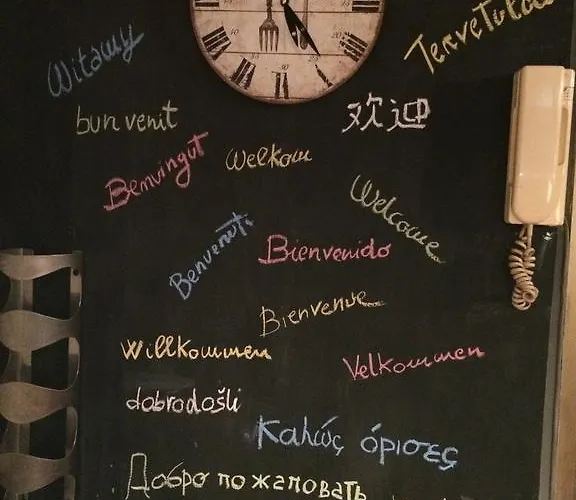 Witamy
TerveTuloa
bun venit
欢迎
Benvingut
Welkom
Welcome
Benvenuti
Bienvenido
Bienvenue
Willkommen
Velkommen
dobrodošli
Καλώς όρισες
Добро пожаловать